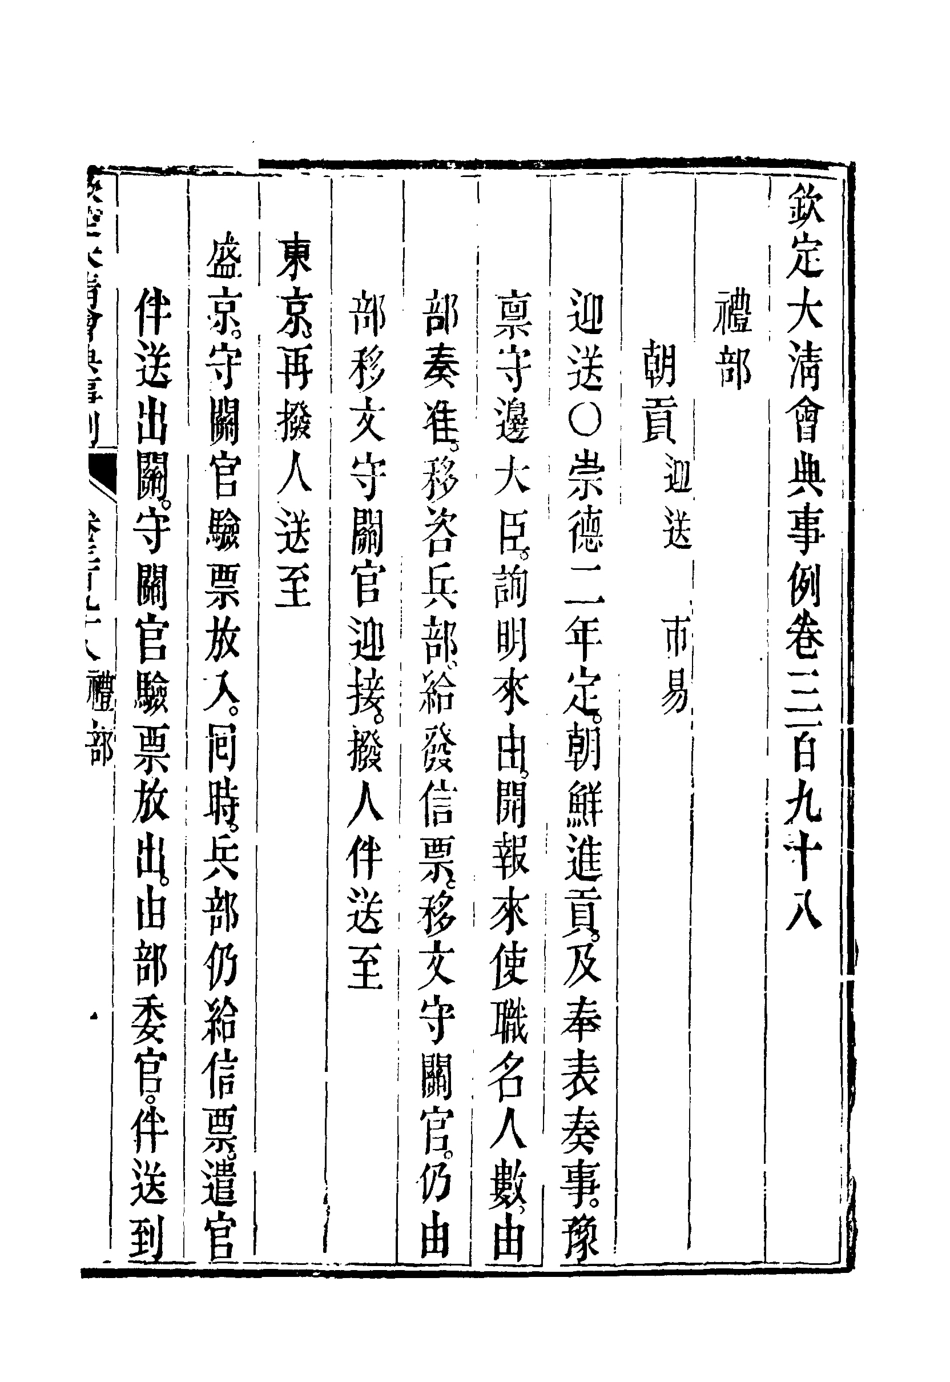 欽定大清會典事例卷三百九十八
禮部
朝貢 迎送 市易
迎送〇崇德二年定。朝鮮進貢。及奉表奏事。豫
稟守邊大臣。詢明來由。開報來使職名人數。由
部奏准。移咨兵部。給發信票。移文守關官。仍由
部移文守關官迎接。撥人伴送至
東京。再撥人送至
盛京。守關官驗票放入。囘時。兵部仍給信票。遣官
伴送出關。守關官驗票放出。由部委官。伴送到
欽定大清會典事例 卷三百九十八 禮部 一